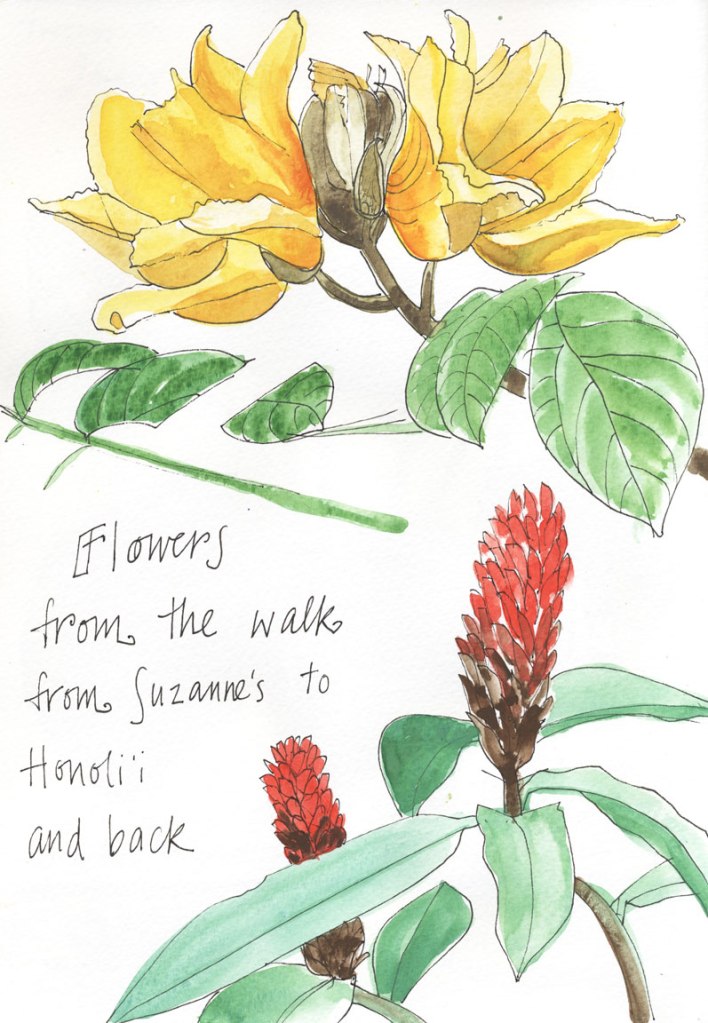 Flowers
from the walk
from Suzanne's to
Honoli'i
and back